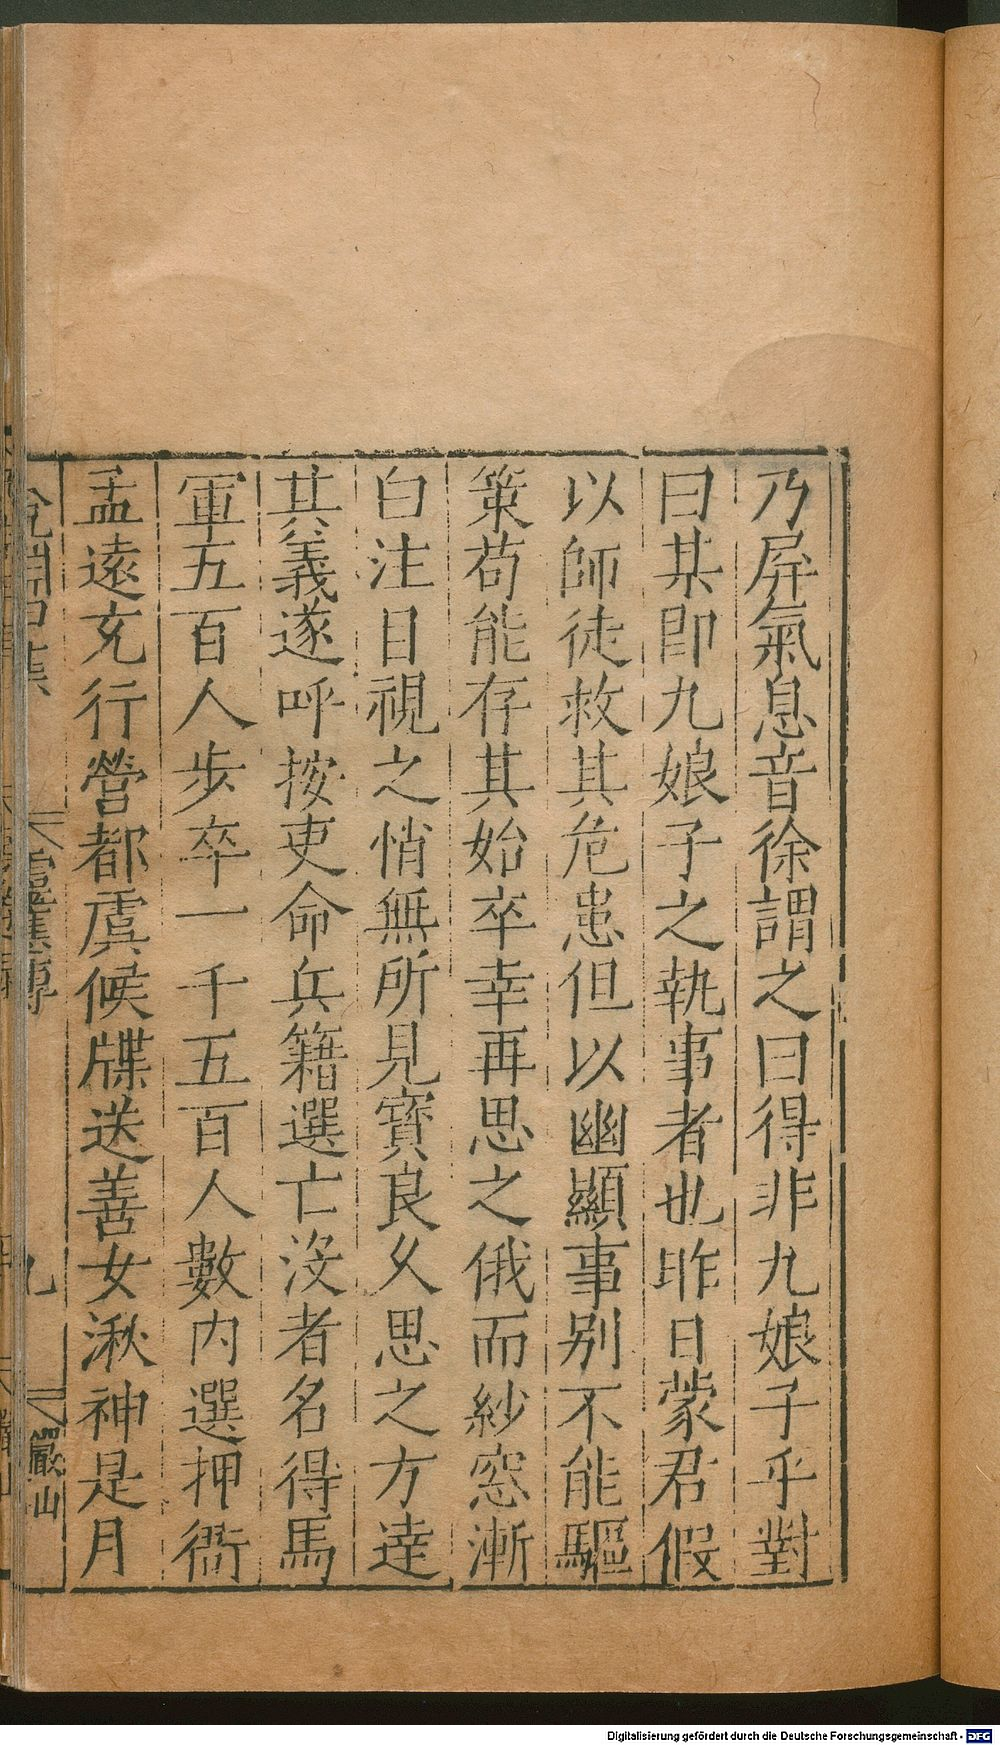 乃屏氣息音徐謂之曰得非九娘子乎對
曰某即九娘子之執事者也昨日蒙君假
以師徒救其危患但以幽顯事别不能驅
策苟能存其始卒幸再思之俄而紗窓漸
白注目視之悄無所見寶良久思之方達
其義遂呼按吏命兵籍選亡沒者名得馬
軍五百人步卒一千五百人數内選押衙
孟遠充行營都虞候牒送善女湫神是月
說淵 集 靈應傳 九 儼山
Digitalisierung gefördert durch die Deutsche Forschungsgemeinschaft - DFG